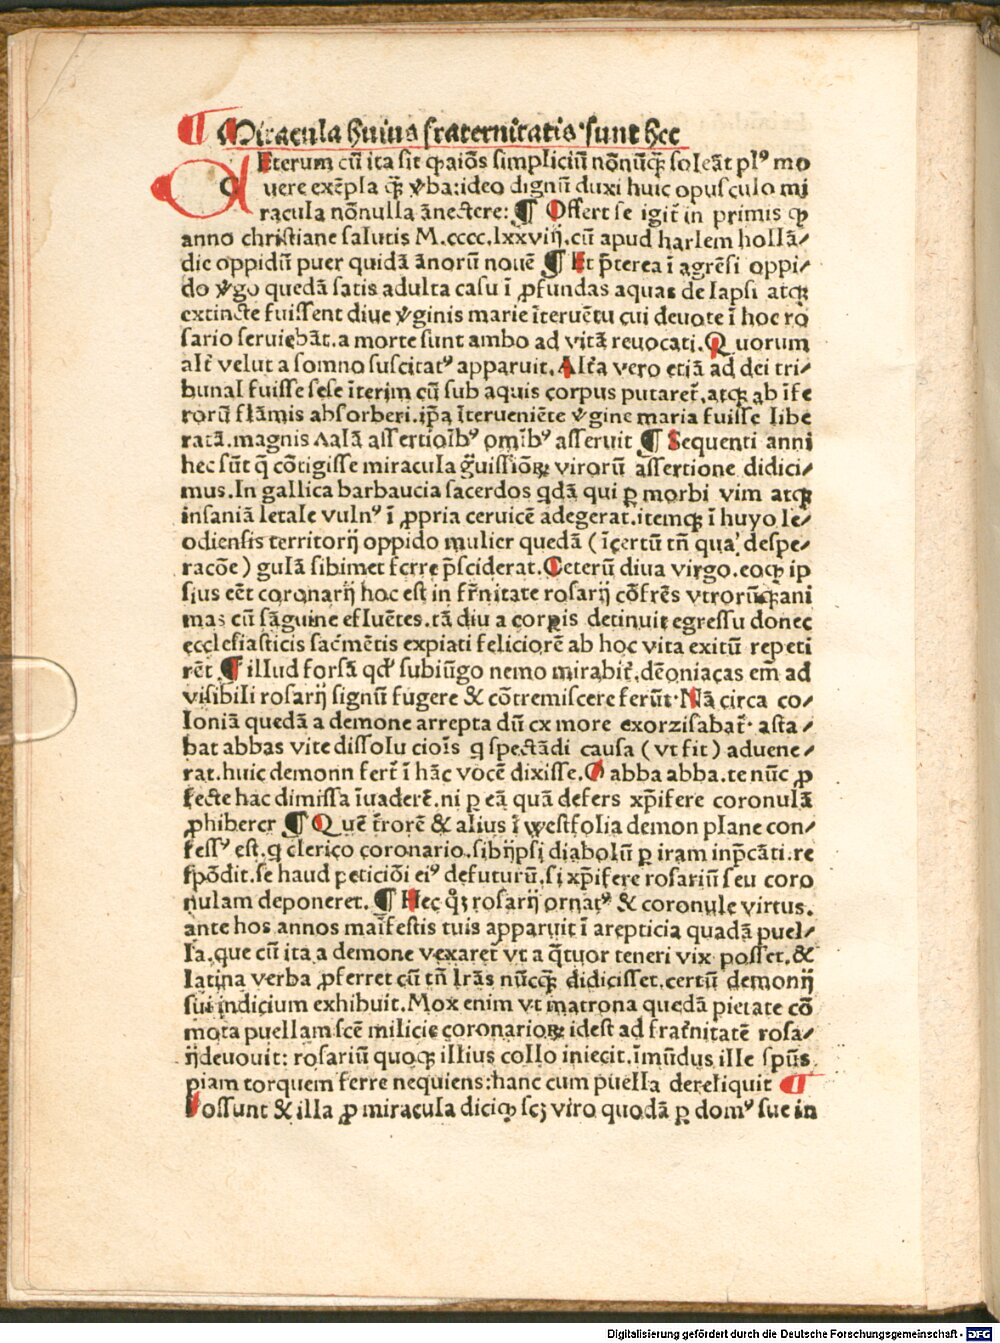 ¶ Miracula huius fraternitatis sunt hec
CEterum cū ita sit ꝙ aiōs simpliciū nōnūqꝫ soleāt plꝰ mo
uere exēpla qꝫ v̄ba: ideo dignū duxi huic opusculo mi
racula nōnulla ānectere: ¶ Offert se igit̄ in primis ꝙ
anno christiane salutis M.cccc.lxxviij. cū apud harlem hollā⸗
die oppidū puer quidā ānorū nouē ¶ Et p̄terea ī agrēsi oppi⸗
do v̄go quedā satis adulta casu ī ꝓfundas aquas delapsi atqꝫ
extincte fuissent diue v̄ginis marie īteruētu cui deuote ī hoc ro
sario seruiebāt. a morte sunt ambo ad vitā reuocati. Quorum
alt̄ velut a somno suscitatꝰ apparuit. Alt̄a vero etiā ad dei tri⸗
bunal fuisse sese īterim cū sub aquis corpus putaret̄. atqꝫ ab īfe
rorū flāmis absorberi. ip̄a īterueniēte v̄gine maria fuisse libe
ratā. magnis Aalā assertioībꝰ omībꝰ asseruit ¶ Sequenti anni
hec sūt q̄ cōtigisse miracula g̈uissiōꝝ virorū assertione didici⸗
mus. In gallica barbaucia sacerdos qdā qui ꝑ morbi vim atqꝫ
insaniā letale vulnꝰ ī ꝓpria ceruicē adegerat. itemqꝫ ī huyo le⸗
odiensis territorij oppido mulier quedā (īcertū tn̄ qua' despe⸗
racōe) gulā sibimet ferre p̄sciderat. Ceterū diua virgo. eoqꝫ ip
sius eēt coronarij hoc est in fr̄nitate rosarij cōfrēs vtrorūqꝫ ani
mas cū sāguine efluētes. tā diu a corꝑis detinuit egressu donec
ecclesiasticis sac̄mētis expiati feliciorē ab hoc vita exitū repeti
rēt ¶ illud forsā qd' subiūgo nemo mirabit̄. dēoniacas em̄ ad
visibili rosarij signū fugere & cōtremiscere ferūt. Nā circa co⸗
loniā quedā a demone arrepta dū ex more exorzisabat̄. asta⸗
bat abbas vite dissolu cioīs q spectādi causa (vt fit) aduene⸗
rat. huic demonn fert̄ ī hāc vocē dixisse. O abba abba. te nūc ꝓ
fecte hac dimissa īuaderē. ni ꝑ eā quā defers xp̄ifere coronulā
ꝓhiberer ¶ Quē t̄rorē & alius ī westfolia demon plane con⸗
fessꝰ est. q clerico coronario. sibijpsi diabolū ꝑ iram inp̄cāti. re
spōdit. se haud peticiōi eiꝰ defuturū. si xp̄ifere rosariū seu coro
nulam deponeret. ¶ Hec qꝫ rosarij ornatꝰ & coronule virtus.
ante hos annos maīfestis tuis apparuit ī arepticia quadā puel⸗
la. que cū ita a demone vexaret̄ vt a q̄tuor teneri vix posset. &
latina verba ꝓferret cū tn̄ lrās nūcqꝫ didicisset. certū demonij
sui indicium exhibuit. Mox enim vt matrona quedā pietate cō
mota puellam scē milicie coronarioꝝ idest ad frat̄nitatē rosa⸗
rij deuouit: rosariū quoqꝫ illius collo iniecit. īmūdus ille spūs
piam torquem ferre nequiens: hanc cum puella dereliquit ¶
Possunt & illa ꝓ miracula diciqꝫ scꝫ viro quodā ꝑ domꝰ sue in
Digitalisierung gefördert durch die Deutsche Forschungsgemeinschaft - DFG